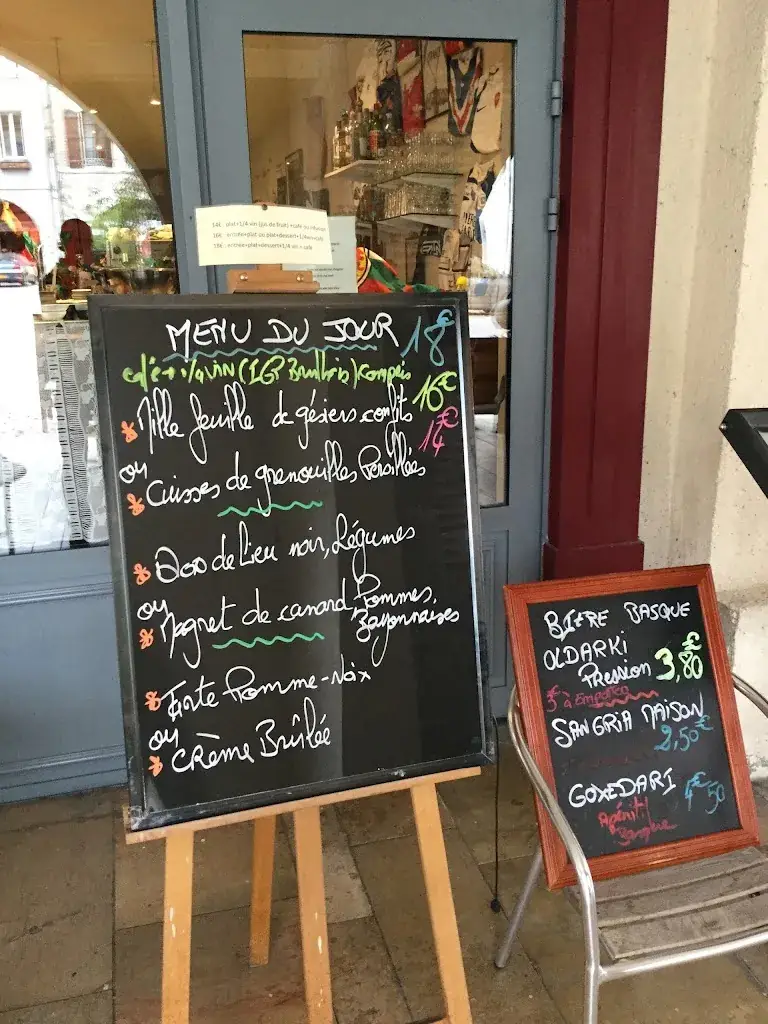 14€ : plat+1/4 vin (jus de fruit) +café
16€ : entrée+plat ou plat+dessert+1/4vin+café
18€ : entrée+plat+dessert+1/4 vin + café
MENU DU JOUR 18€
café + 1/4 VIN (IGP Brulhois) compris 16€
* Mille feuille de gésiers confits 14€
ou
* Cuisses de grenouilles Persillées
* Dos de Lieu noir, Légumes
ou
* Magret de canard, Pommes,
bayonnaises
* Tarte Pomme-Noix
ou
* CRÈME BRûlée
BIERE BASQUE
OLDARKI
Pression 3,80€
3€ à Emporter
SANGRIA MAISON
2,50€
GOXEDARI 4€50
Apéritif
Basque